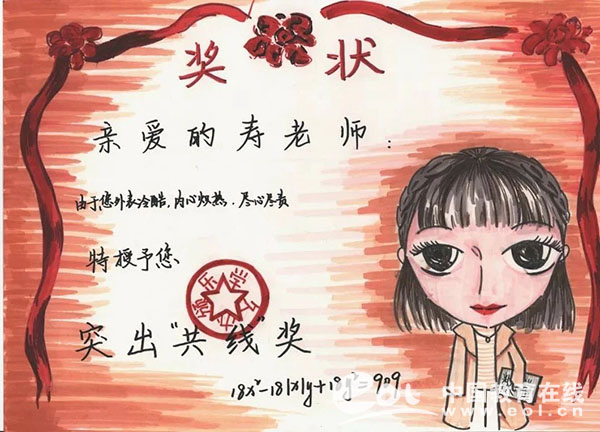 奖状
亲爱的寿老师:
由于您外表冷酷,内心炽热.尽心尽责
特授予您
突出"共线"奖
18x²-18|x|y+
eol 中国教育在线
www.eol.cn